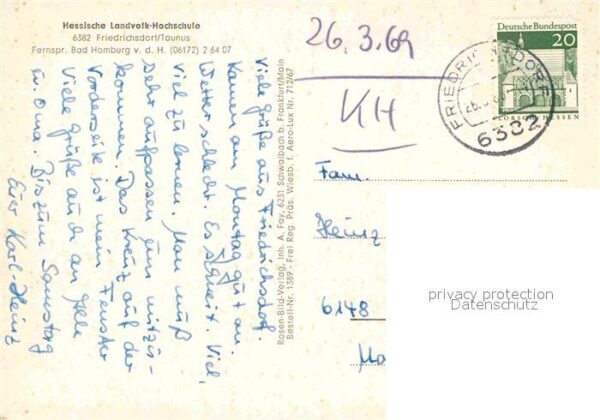 Hessische Landvolk-Hochschule
6382 Friedrichsdorf/Taunus
Fernspr. Bad Homburg v. d. H. (06172) 2 64 07
Viele Grüße aus Friedrichsdorf.
Kamen am Montag gut an.
Wetter schlecht. Es schneit. Viel,
viel zu lernen. Man muß
sehr aufpassen um mitzu-
kommen. Das Kreuz auf der
Vorderseite ist mein Fenster
Viele Grüße auch an alle
u. Oma. Bis zum Samstag
Euer Karl-Heinz
Rosen-Bild-Verlag, Inh. A. Fay, 6231 Schwalbach b. Frankfurt/Main
Bestell-Nr. 1389 · Frei Reg. Präs. Wiesb. f. Aero-Lux Nr. 712/67
26.3.69
KH
Deutsche Bundespost
20
LORSCH/HESSEN
FRIEDRICHSDORF
6382
Fam.
Heinz
6148
privacy protection
Datenschutz